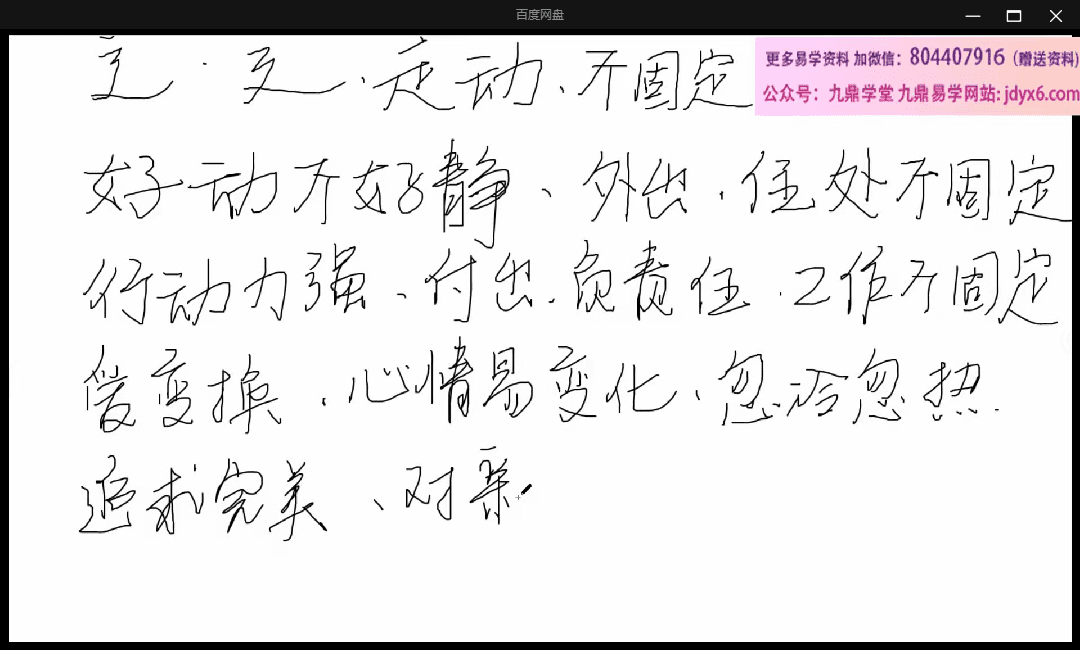 百度网盘
更多易学资料 加微信：804407916（赠送资料)
公众号：九鼎学堂 九鼎易学网站: jdyx6.com
走动、不固定
好动不好静、外出、住处不固定
行动力强、付出、负责任、工作不固定
爱变换、心情易变化、忽冷忽热.
追求完美、对亲